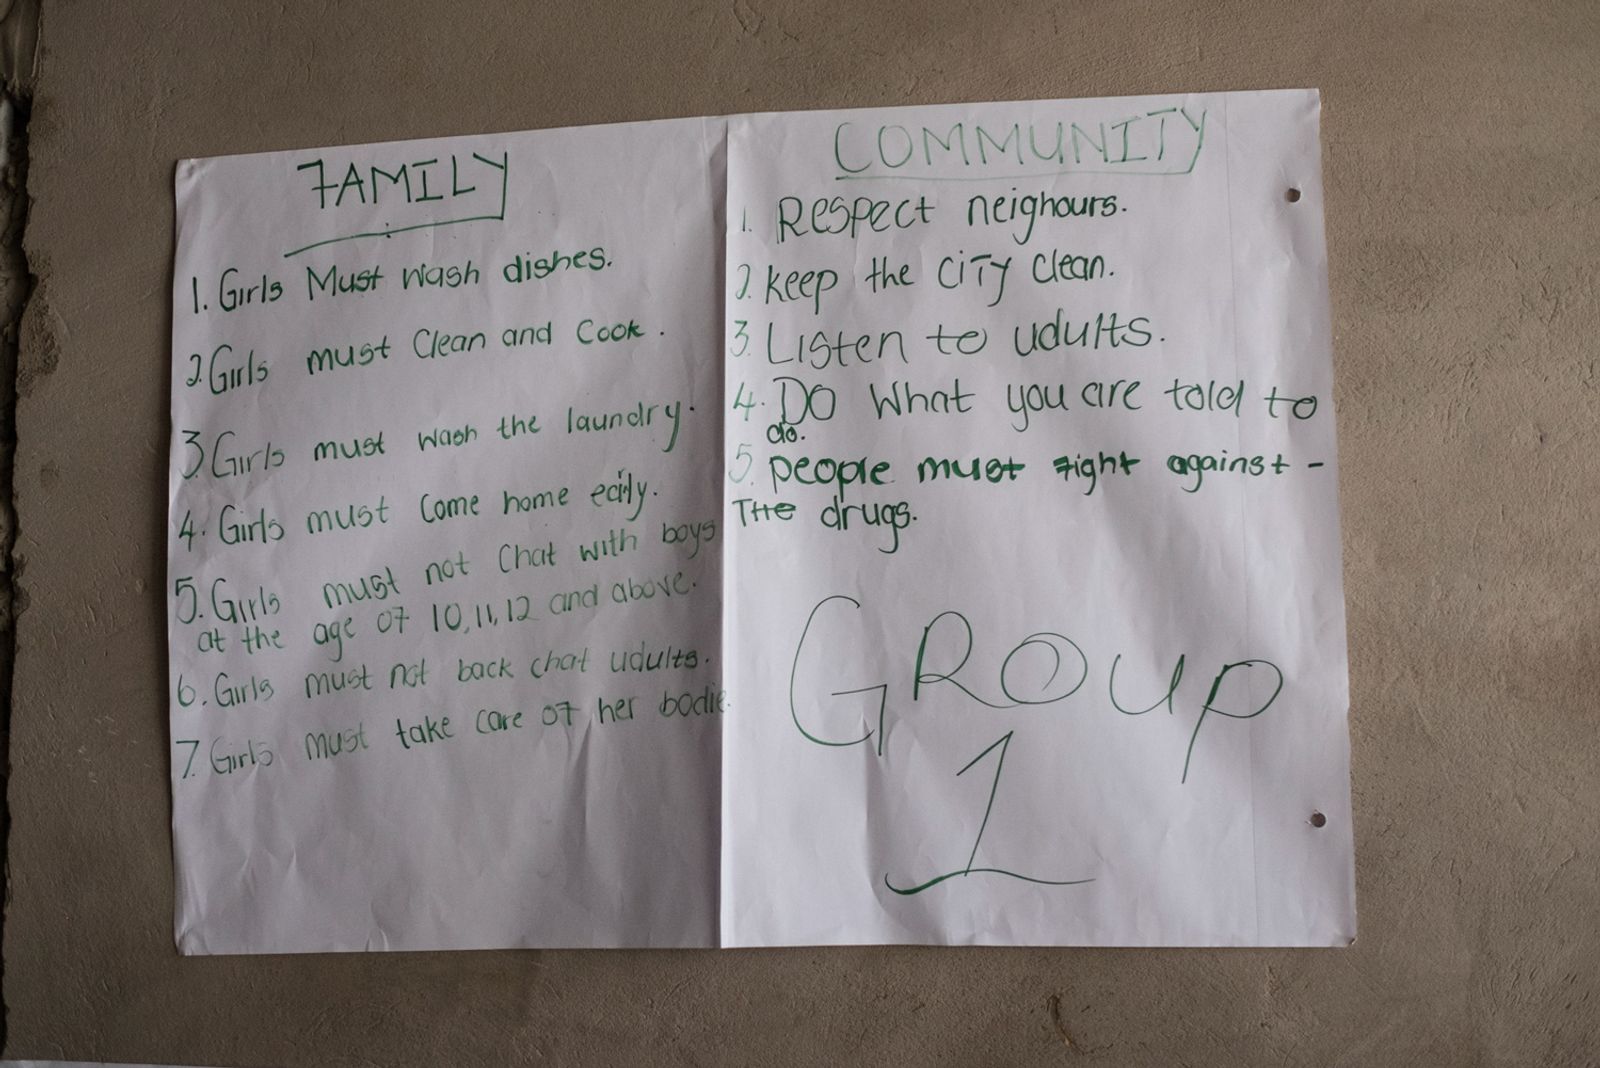 FAMILY
1. Girls Must wash dishes.
2. Girls must Clean and Cook.
3. Girls must wash the laundry.
4. Girls must Come home early.
5. Girls must not Chat with boys
at the age of 10, 11, 12 and above.
6. Girls must not back chat udults.
7. Girls must take care of her bodie.
COMMUNITY
1. Respect neighours.
2. keep the CiTy Clean.
3. Listen to udults.
4. DO What you are told to
do.
5. people must fight against -
THe drugs.
GROUP
1